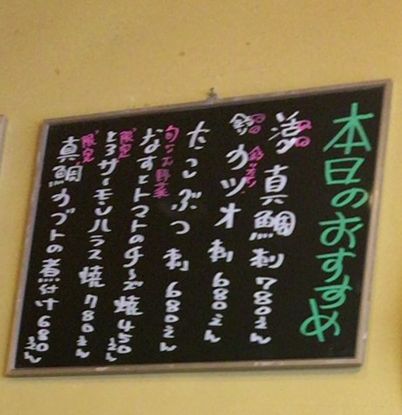 本日のおすすめ
活真鯛刺780えん
釣りカツオ刺680えん
たこぶつ刺680えん
旬のお野菜
なすとトマトのチーズ焼450えん
限定
とろサーモンハラス焼780えん
限定
真鯛カブトの煮付け680えん